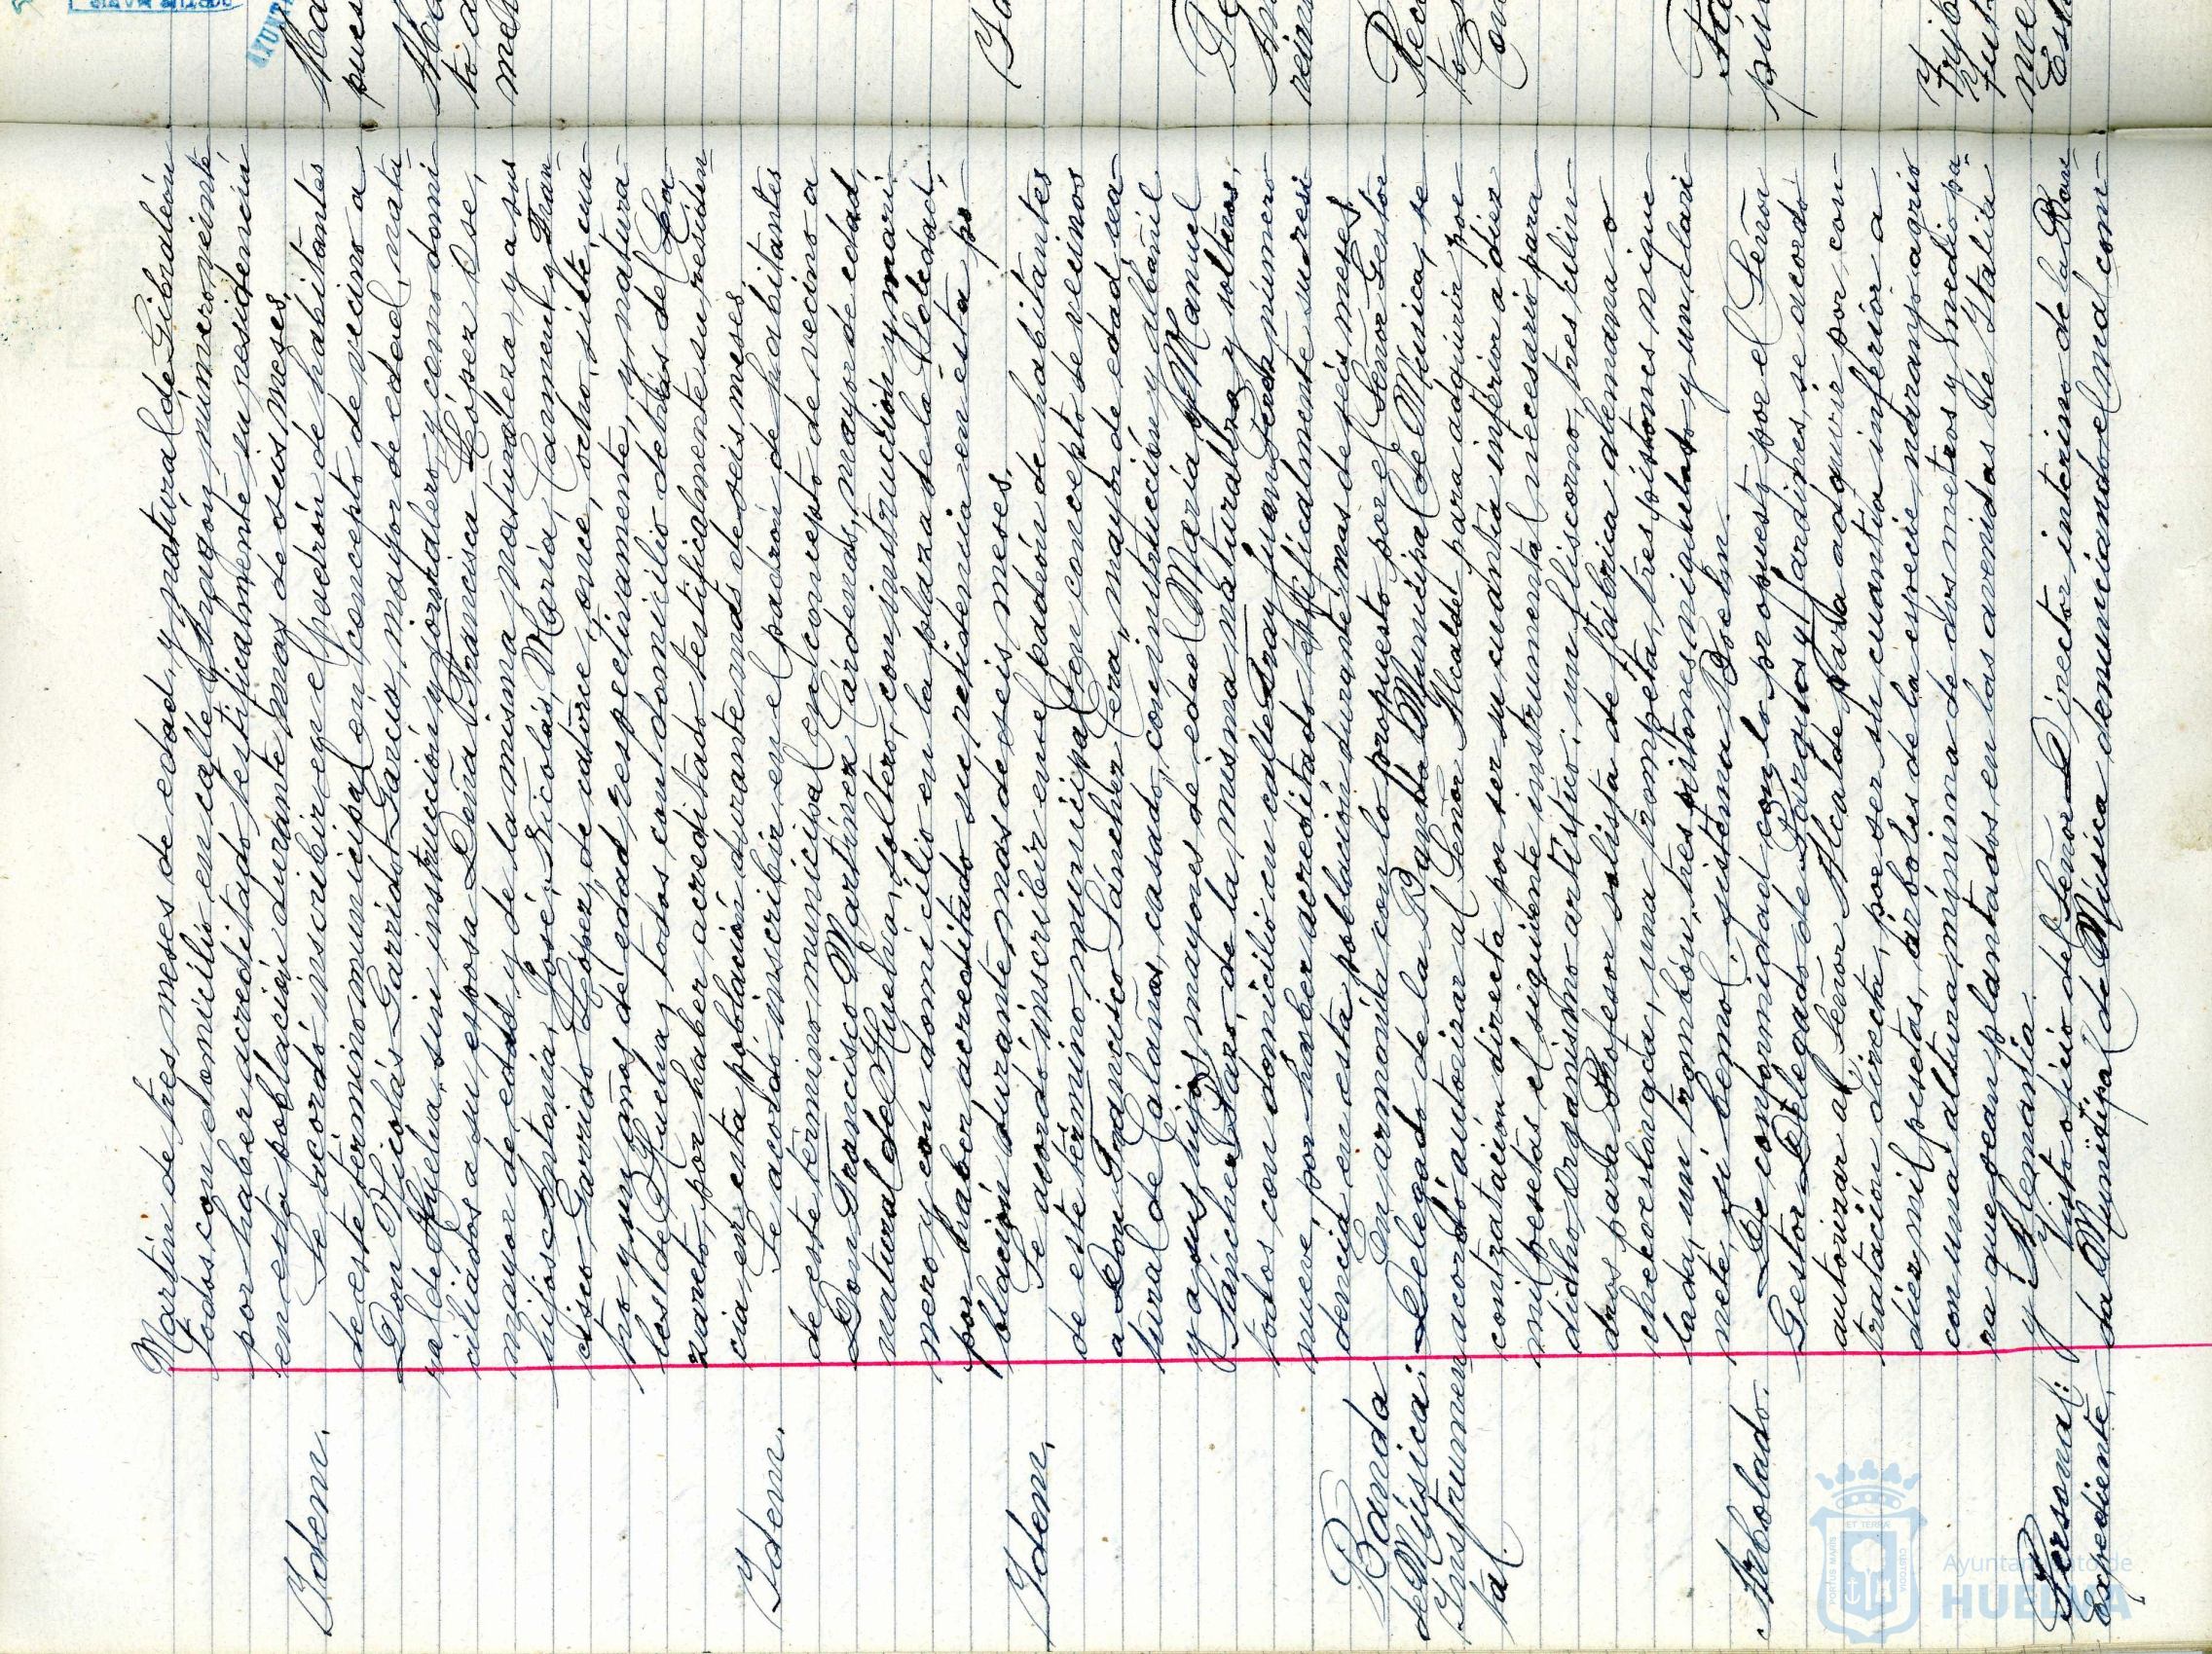 Martín de tres meses de edad, y natural de Gibraleón
todos con domicilio en calle Aragón número veinte
por haber acreditado testificalmente su residencia
en esta población durante mas de seis meses.
Idem.
Se acordó inscribir en el padrón de habitantes
de este término municipal en concepto de vecino a
Don Nicolás Garrido García, mayor de edad, natu-
ral de Huelva, sin instrucción y jornalero y como domi-
ciliados a su esposa Doña Francisca López Ose,
mayor de edad y de la misma naturaleza, y a sus
hijos Antonia, José, Nicolás, María, Carmen y Fran-
cisco Garrido López, de catorce, once, ocho, siete, cua-
tro y un años de edad respectivamente, y natura-
les de Huelva, todos con domicilio detrás del La-
zareto, por haber acreditado testificalmente su residen-
cia en esta población durante mas de seis meses.
Idem.
Se acordó inscribir en el padrón de habitantes
de este término municipal en concepto de vecino a
Don Francisco Martínez Cárdenas, mayor de edad,
natural de Huelva, soltero, con instrucción y mari-
nero y con domicilio en la plaza de la Soledad,
por haber acreditado su residencia en esta po-
blación durante mas de seis meses.
Idem.
Se acordó inscribir en el padrón de habitantes
de este término municipal en concepto de vecinos
a Don Francisco Sánchez Cera, mayor de edad, na-
tural de Calañas, casado, con instrucción y albañil
y a sus hijos mayores de edad María y Manuel
Sánchez Haro, de la misma naturaleza y solteros,
todos con domicilio en calle Fray Juan Pérez número
nueve, por haber acreditado testificalmente su resi
dencia en esta población durante mas de seis meses.
Banda
de Música:
Instrumen
tal.
En armonía con lo propuesto por el Señor Gestor
Delegado de la Banda Municipal de Música, se
acordó autorizar al Señor Alcalde para adquirir por
contratación directa por ser su cuantía inferior a diez
mil pesetas el siguiente instrumental necesario para
dicho Organismo artístico: un fliscorno, tres cilin-
dros para Profesor solista de fábrica alemana o
checoeslovaca, una trompeta, tres pistones nique
lada, un trombón, tres pistones niquelado y un clari
nete, si bemol, sistema Boehn.
Arbolado.
De conformidad con lo propuesto por el Señor
Gestor Delegado de Parques y Jardines, se acordó
autorizar al Señor Alcalde para adquirir por con-
tratación directa, por ser su cuantía inferior a
diez mil pesetas, árboles de la especie naranjo agrio
con una altura mínima de dos metros y medio pa-
ra que sean plantados en las avenidas de Italia
y Alemania.
Personal:
Expediente.
Visto oficio del Señor Director interino de la Ban-
da Municipal de Música denunciando el mal com-
Ayuntamiento de
HUELVA